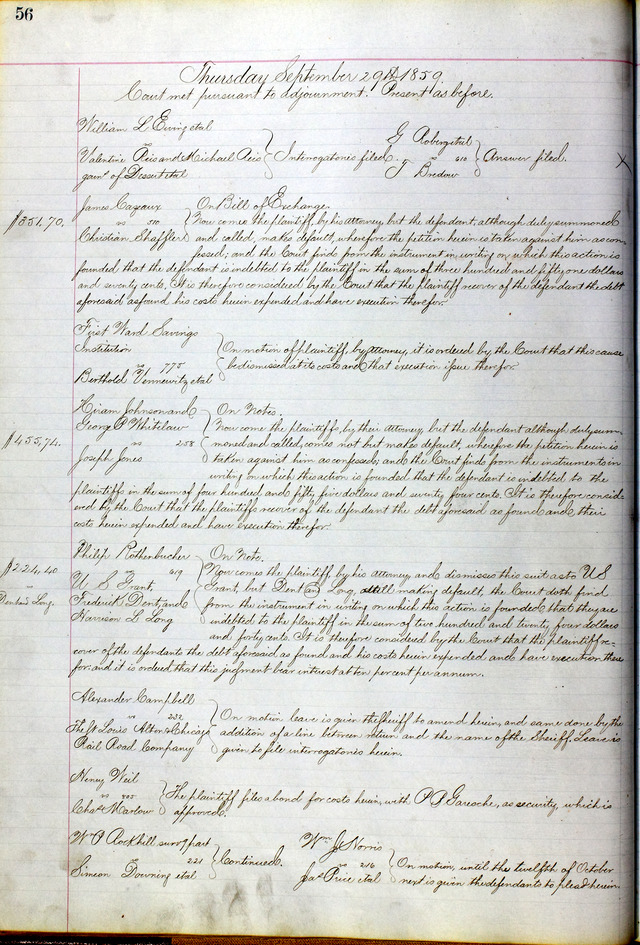 56
Thursday September 29th 1859.
Court met pursuant to adjournment. Present as before.
William L Ewing etal
Valentine Reis and Michael Reis
garn'. of Dessert etal
Interrogatories filed.
G Roberg etal
vs 610
J Bredow
Answer filed.
X
James Cazeaux
vs 510
Christian Shaffler
$351.70.
On Bill of Exchange.
Now comes the plaintiff, by his attorney, but the defendant, although duly summoned
and called, makes default, wherefore the petition herein is taken against him as con
fessed; and the Court finds from the instrument in writing on which this action is
founded that the defendant is indebted to the plaintiff in the sum of three hundred and fifty one dollars
and seventy cents. It is therefore considered by the Court that the plaintiff recover of the defendant the debt
aforesaid as found his costs herein expended and have execution therefor.
First Ward Savings
Institution
vs 775
Berthold Vennewitz etal
On motion of plaintiff, by attorney, it is ordered by the Court that this cause
be dismissed at its costs and that execution issue therefor.
Hiram Johnson and
George P Whitelaw
vs 258
Joseph Jones
$455.74.
On Notes.
Now come the plaintiffs, by their attorney, but the defendant although duly sum
moned and called, comes not but makes default, wherefore the petition herein is
taken against him as confessed; and the Court finds from the instruments in
writing on which this action is founded that the defendant is indebted to the
plaintiffs in the sum of four hundred and fifty five dollars and seventy four cents. It is therefore consid
ered by the Court that the plaintiffs recover of the defendant the debt aforesaid as found and their
costs herein expended and have execution therefor.
Philip Rothenbucher
vs 219
U S Grant,
Frederick Dent, and
Harrison L Long
$224.40
vs
Dent and Long.
On Note.
Now comes the plaintiff, by his attorney, and dismisses this suit as to U S
Grant, but Dent and Long, still making default, the Court doth find
from the instrument in writing on which this action is founded, that they are
indebted to the plaintiff in the sum of two hundred and twenty four dollars
and forty cents. It is therefore considered by the Court that the plaintiff re-
cover of the defendants the debt aforesaid as found and his costs herein expended and have execution there
for. and it is ordered that this judgment bear interest at ten per cent per annum.
Alexander Campbell
vs 232
The St Louis Alton & Chicago
Rail Road Company
On motion leave is given the Sheriff to amend herein, and same done by the
addition of a line between return and the name of the Sheriff. Leave is
given to file interrogatories herein.
Henry Weil
vs 405
Chas Marlow
The plaintiff files a bond for costs herein, with P P Garesche, as security, which is
approved.
W P Rockhill surv'g part
221
Simeon Downing etal
Continued.
Wm J Norris
vs 216
Jas Price etal
On motion, until the twelfth of October
next is given the defendants to plead herein.